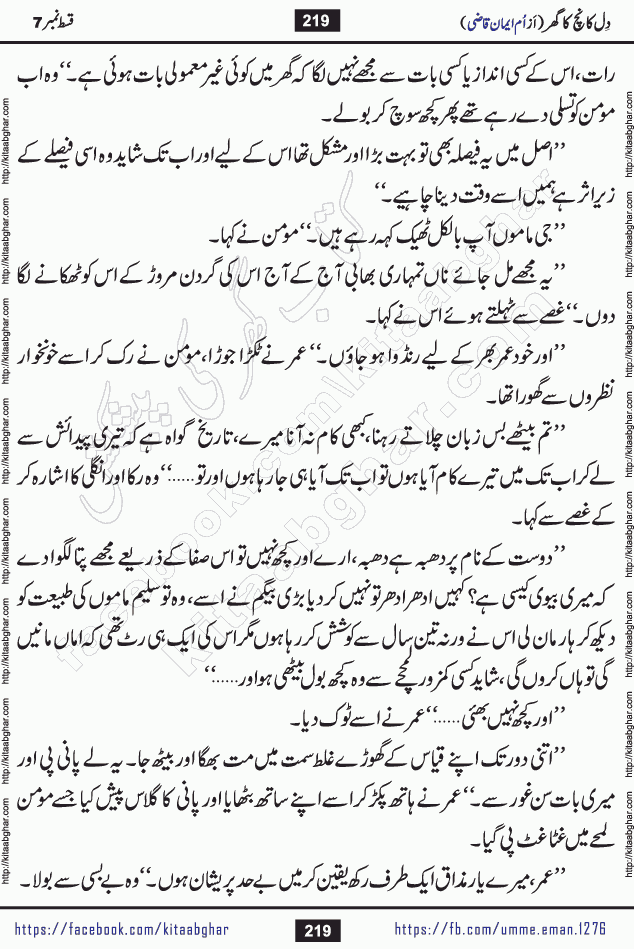 دِل کانچ کا گھر (اَز اُم ایمان قاضی)
219
قسط نمبر 7
رات، اس کے کسی انداز یا کسی بات سے مجھے نہیں لگا کہ گھر میں کوئی غیر معمولی بات ہوئی ہے۔‘‘ وہ اب
مومن کو تسلی دے رہے تھے پھر کچھ سوچ کر بولے۔
’’اصل میں یہ فیصلہ بھی تو بہت بڑا اور مشکل تھا اس کے لیے اور اب تک شاید وہ اسی فیصلے کے
زیرِ اثر ہے ہمیں اسے وقت دینا چاہیے۔‘‘
’’جی ماموں آپ بالکل ٹھیک کہہ رہے ہیں۔‘‘ مومن نے کہا۔
’’یہ مجھے مل جائے ناں تمہاری بھابی آج کے آج اس کی گردن مروڑ کے اس کو ٹھکانے لگا
دوں۔‘‘ غصے سے ٹہلتے ہوئے اس نے کہا۔
’’اور خود عمر بھر کے لیے رنڈوا ہو جاؤں۔‘‘ عمر نے ٹکڑا جوڑا، مومن نے رک کر اسے خونخوار
نظروں سے گھورا تھا۔
’’تم بیٹھے بس زبان چلاتے رہنا، کبھی کام نہ آنا میرے، تاریخ گواہ ہے کہ تیری پیدائش سے
لے کر اب تک میں تیرے کام آیا ہوں تو اب تک آیا ہی جا رہا ہوں اور تو……‘‘ وہ رکا اور انگلی کا اشارہ کر
کے غصے سے کہا۔
’’دوست کے نام پر دھبہ ہے دھبہ، ارے اور کچھ نہیں تو اس صفا کے ذریعے مجھے پتا لگوا دے
کہ میری بیوی کیسی ہے؟ کہیں ادھر ادھر تو نہیں کر دیا بڑی بیگم نے اسے، وہ تو سلیم ماموں کی طبیعت کو
دیکھ کر ہار مان لی اس نے ورنہ تین سال سے کوشش کر رہا ہوں مگر اس کی ایک ہی رٹ تھی کہ اماں مانیں
گی تو ہاں کروں گی، شاید کسی کمزور لمحے سے وہ کچھ بول بیٹھی ہو اور……‘‘
’’اور کچھ نہیں بھئی……‘‘ عمر نے اسے ٹوک دیا۔
’’اتنی دور تک اپنے قیاس کے گھوڑے غلط سمت میں مت بھگا اور بیٹھ جا۔ یہ لے پانی پی اور
میری بات سن غور سے۔‘‘ عمر نے ہاتھ پکڑ کر اسے اپنے ساتھ بٹھایا اور پانی کا گلاس پیش کیا جسے مومن
لمحے میں غٹا غٹ پی گیا۔
’’عمر، میرے یار مذاق ایک طرف رکھ یقین کر میں بے حد پریشان ہوں۔‘‘ وہ بے بسی سے بولا۔
https://facebook.com/kitaabghar
219
https://fb.com/umme.eman.1276
http://kitaabghar.com
کتاب گھر کی پیشکش
facebook.com/kitaabghar
kitaabghar.com